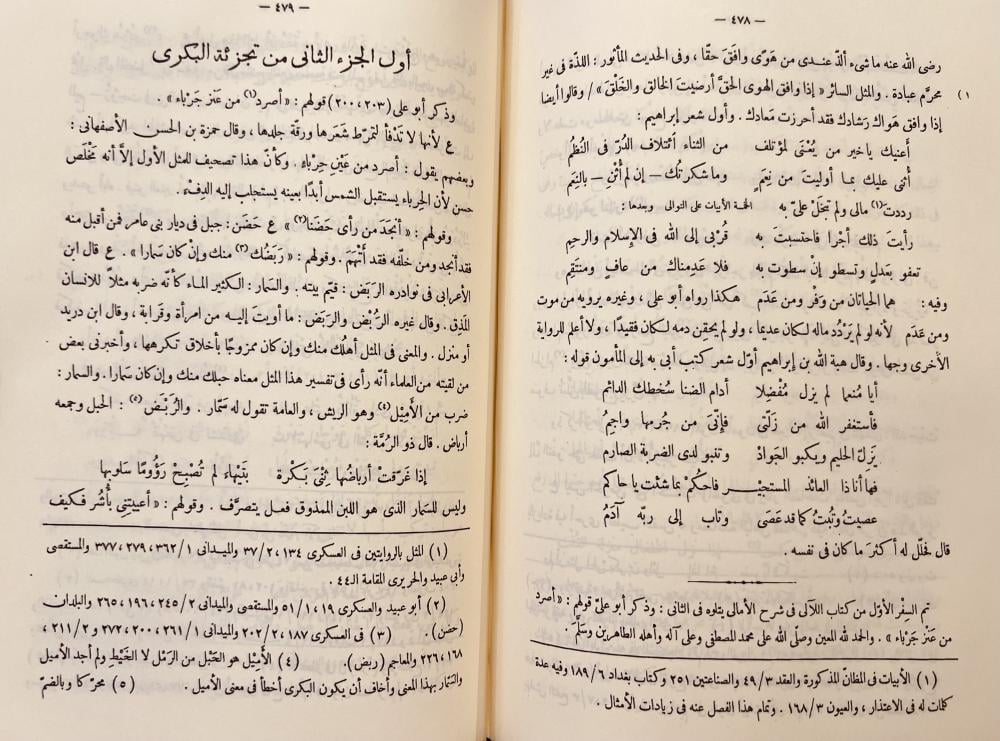 — ٤٧٨ —
رضى الله عنه ماشىء ألذّ عندى من هَوًى وافَقَ حقّا ، وفى الحديث المأثور : اللذة فى غير
محرَّم عبادة . والمثل السائر « إذا وافق الهوى الحقَّ أرضيتَ الخالق والخَلْقَ » / وقالوا أيضا
١ )
إذا وافق هَواك رَشادك فقد أحرزت مَعادك . وأول شعر إبراهيم :
أعنيك ياخير من يُعْنَى لمؤتلف من الثناء ائتلافَ الدُرّ فى النُظُم
أُثنى عليك بما أوليتَ من نِعَمٍ وما شكرتك — إن لم أُثْنِ — بالنِعَم
رددتَ (١) مالى ولم تبخَلْ علىّ به الخمسة الأبيات على التوالى وبعدها :
رأيتَ ذلك أجْرا فاحتسبتَ به قُرْبى إلى الله فى الإسلام والرحِمِ
تعفو بعَدلٍ وتسطو إنْ سطوت به فلا عَدِمناك من عافٍ ومنتَقِمِ
وفيه : هما الحياتان من وَفْر ومن عَدَم هكذا رواه أبو على ، وغيره يرويه من موت
ومن عَدَم لأنه لو لم يَرْدُد ماله لكان عديما ، ولو لم يحقِن دمه لكان فقيدًا ، ولا أعلم للرواية
الأخرى وجها . وقال هبة الله بن إبراهيم أوّل شعر كتب أبى به إلى المأمون قوله :
أيا مُنعِما لم يزل مُفْضِلا أدام الضنا سُخطك الدائم
فأستغفر الله من زَلّتى فإنّىَ من جُرمها واجِمُ
يَزِلّ الحليم ويكبو الجَوادُ وتنبو لدى الضربة الصارم
فهاأناذا العائذ المستجيـــر فاحكُمْ بما شئت ياحاكم
عصيتُ وتُبتُ كما قد عَصَى وتاب إلى ربّه آدَمُ
قال فحلّل له أكثرَ ما كان فى نفسه .
تم السِفْر الأوّل من كتاب اللآلى فى شرح الأمالى يتلوه فى الثانى : وذكر أبو علىّ قولهم : « أصرد
من عَنْز جَرْباء » . والحمد لله المعين وصلّى الله على محمد المصطفى وعلى آله وأهله الطاهرين وسلّم
(١) الأبيات فى المظانّ المذكورة والعقد ٤٩/٣ والصناعتين ٢٥١ وكتاب بغداد ١٨٩/٦ وفيه عدة
كلمات له فى الاعتذار ، والعيون ١٦٨/٣ . وتمام هذا الفصل عنه فى زيادات الأمثال .
— ٤٧٩ —
أول الجزء الثانى من تجزئة البكرى
وذكر أبو على (٢٠٣،٢٠٠) قولهم : « أصرد (١) من عَنْز جَرْباء » .
ع لأنها لا تَدْفَأ لتمرّط شَعَرها ورقّة جلدها ، وقال حمزة بن الحسن الأصفهانى :
وبعضهم يقول : أصرد من عَيْن حِرْباء . وكأنّ هذا تصحيف للمثل الأول إلّا أنه مَخْلَص
حسن لأن الحِرباء يستقبل الشمس أبدًا بعينه يستجلب إليه الدِفْء .
وقولهم : « أنْجَدَ من رأى حَضَنا (٢) » ع حَضَن : جبل فى ديار بنى عامر فمن أقبل منه
فقد أنجد ومن خلّفه فقد أَتْهَمَ . وقولهم : « رَبَضُك (٣) منك وإنْ كان سَمارا » . ع قال ابن
الأعرابى فى نوادره الرَبَض : قيّم بيته . والسَمار : الكثير الماء كأنّه ضربه مثلاً للانسان
المَذِق . وقال غيره الرُبْض والرَبَض : ما أويتَ إليه من امرأة وقَرابة ، وقال ابن دريد
أو منزل . والمعنى فى المثل أهلُك منك وإن كان ممزوجًا بأخلاق تكرهها ، وأخبرنى بعض
من لقيته من العلماء أنّه رأى فى تفسير هذا المثل معناه حبلك منك وإن كان سَمارا . والسمار :
ضرب من الأَمِيْل (٤) وهو الريش ، والعامة تقول له سَمّار . والرَبَض (٥) : الحبل وجمعه
أرباض . قال ذو الرُمّة :
إذا غَرّقتْ أرباضُها ثِنْىَ بَكْرة بتَيْهاء لم تُصْبِحْ رَؤُومًا سَلوبها
وليس للسَمار الذى هو اللبن الممذوق فعـل يتصرَّف . وقولهم : « أعييتِنى بأُشُر فكيف
(١) المثل بالروايتين فى العسكرى ١٣٤، ٣٧/٢ والميدانى ٣٦٢/١، ٢٧٩، ٣٧٧ والمستقصى
وأبى عبيد والحريرى المقامة الـ٤٤ .
(٢) أبو عبيد والعسكرى ١٩، ٥١/١ والمستقصى والميدانى ٢٤٥/٢، ١٩٦، ٢٦٥ والبلدان
(حضن) . (٣) فى العسكرى ١٨٧، ٢٠٢/٢ والميدانى ٢٦١/١، ٢٠٠، ٢٧٢ و ٢١١/٢،
١٦٨، ٢٢٦ والمعاجم (ربض) . (٤) الأَمِيْل هو الحَبْل من الرَمْل لا الخَيْط ولم أجد الأميل
والسَمّار بهذا المعنى وأخاف أن يكون البكرى أخطأ فى معنى الأميل . (٥) محرّكا وبالضمّ